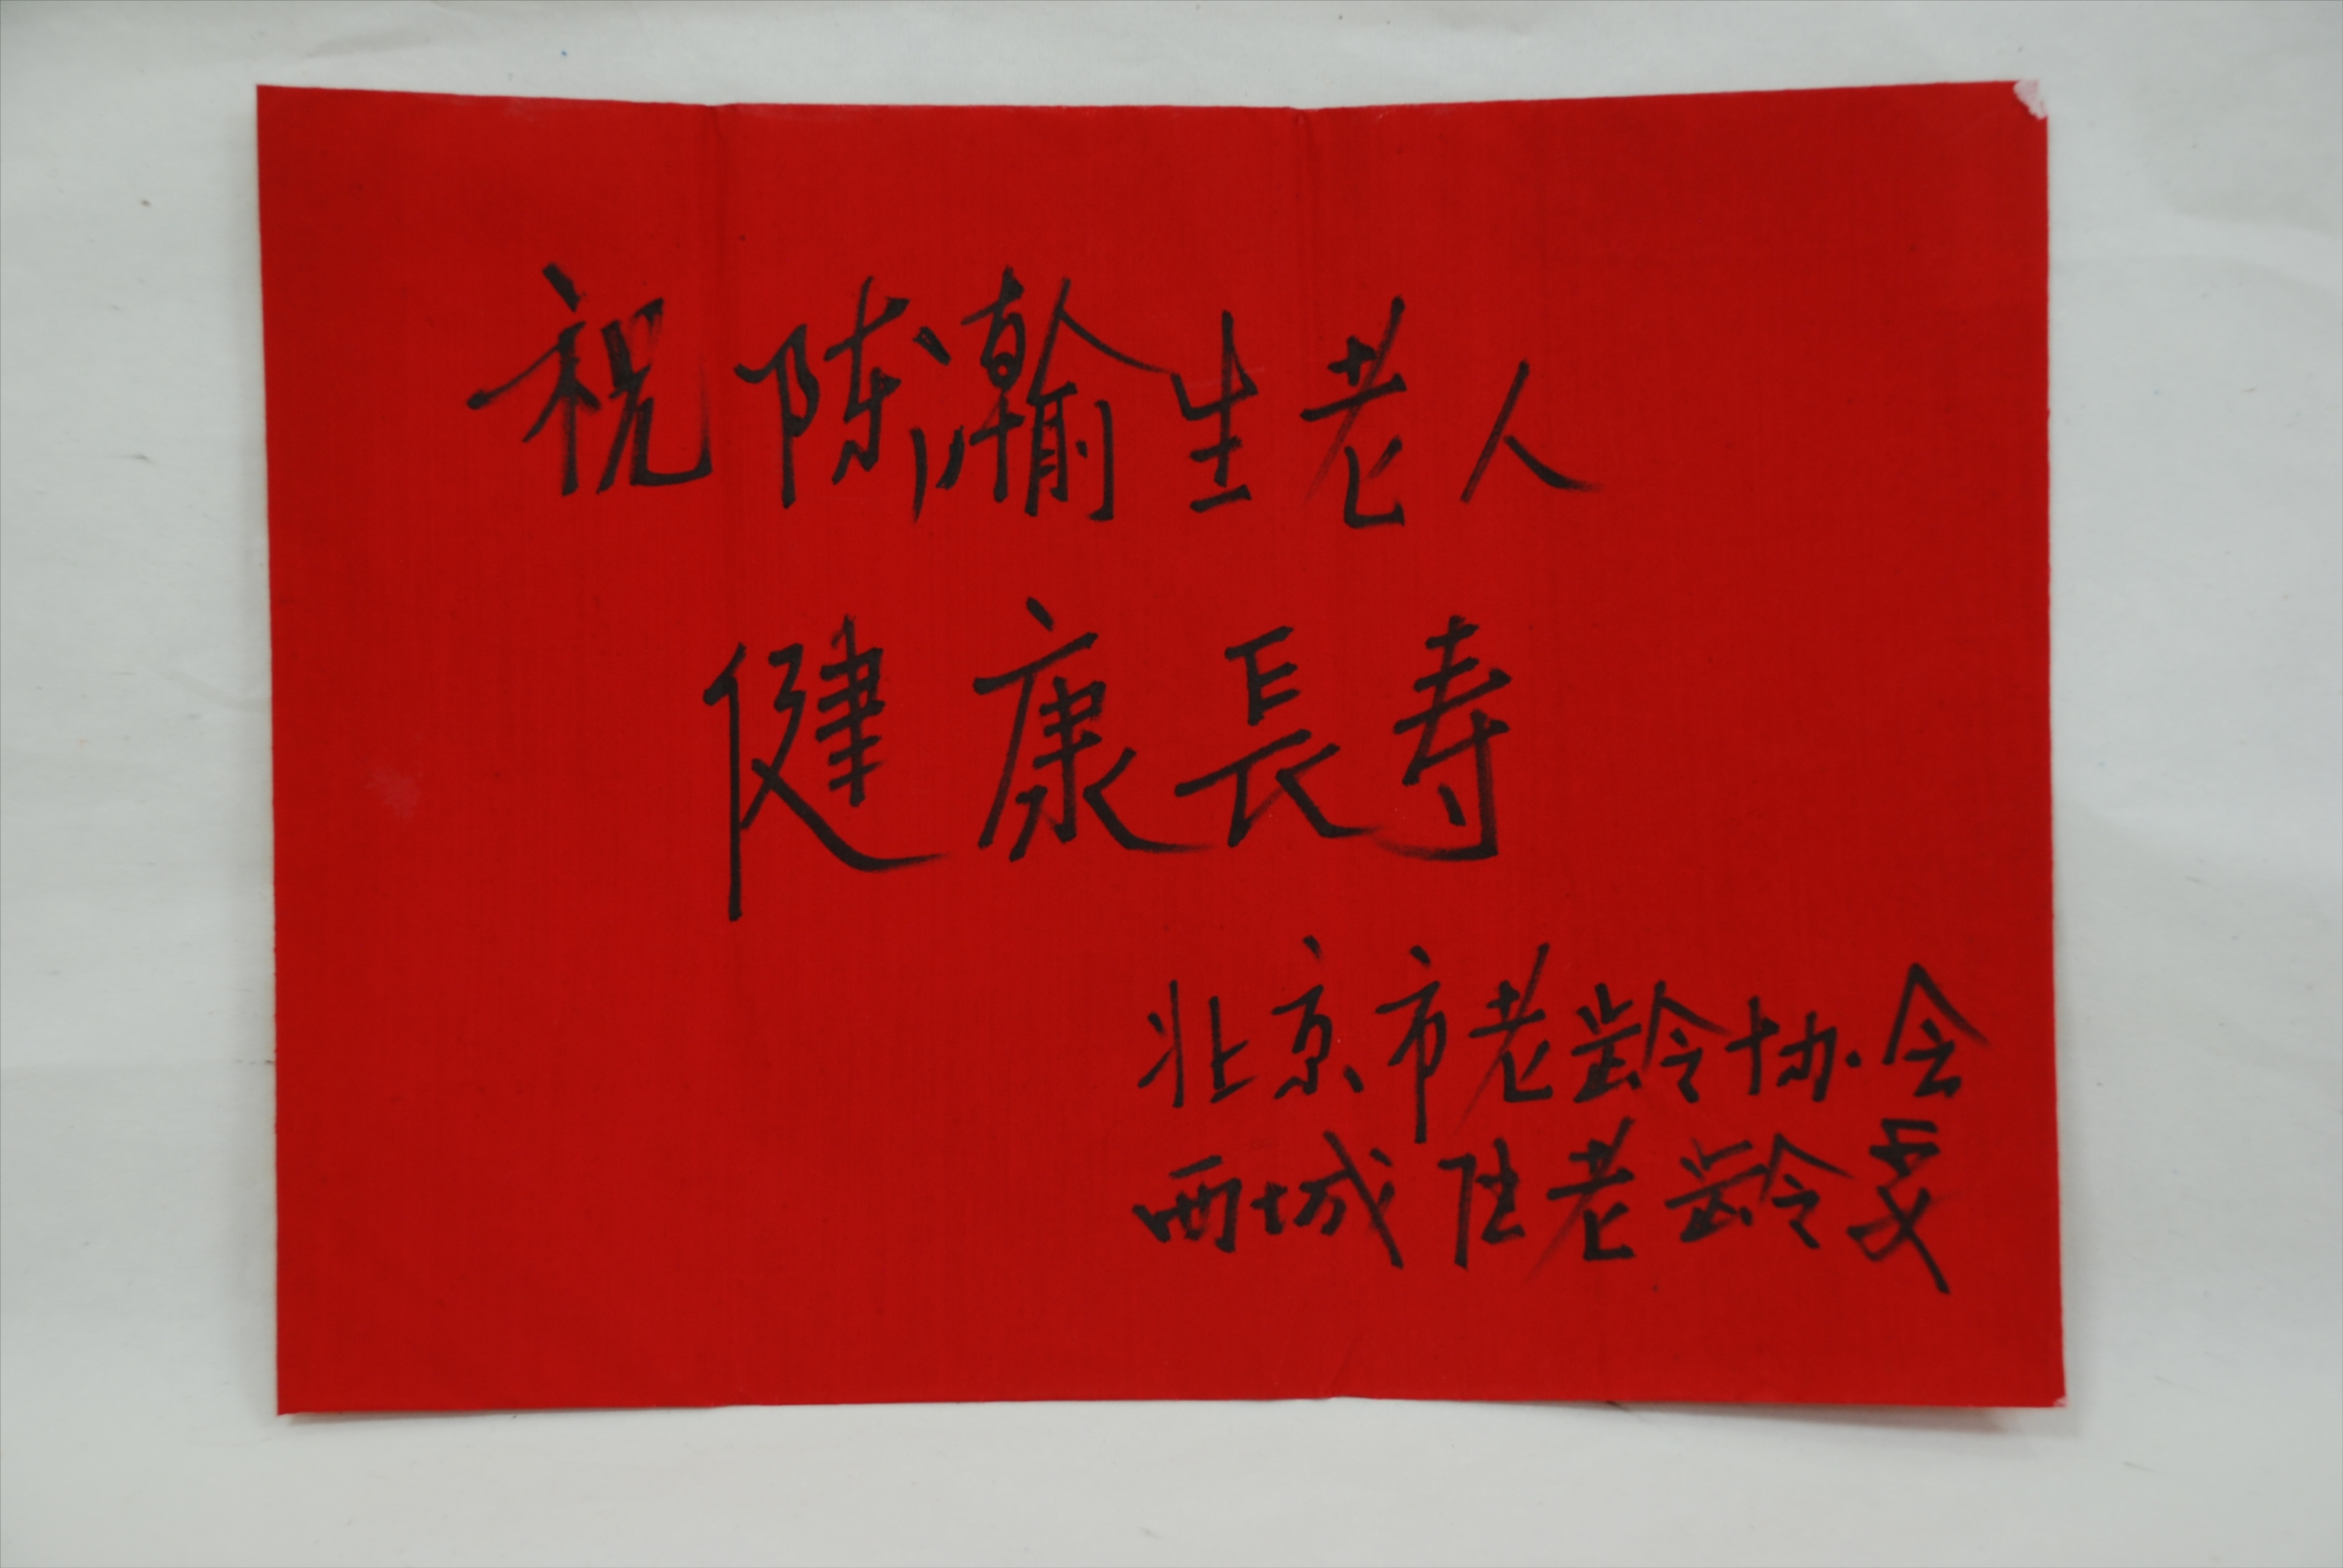 祝陈瀚生老人
健康長寿
北京市老龄协会
西城区老龄委